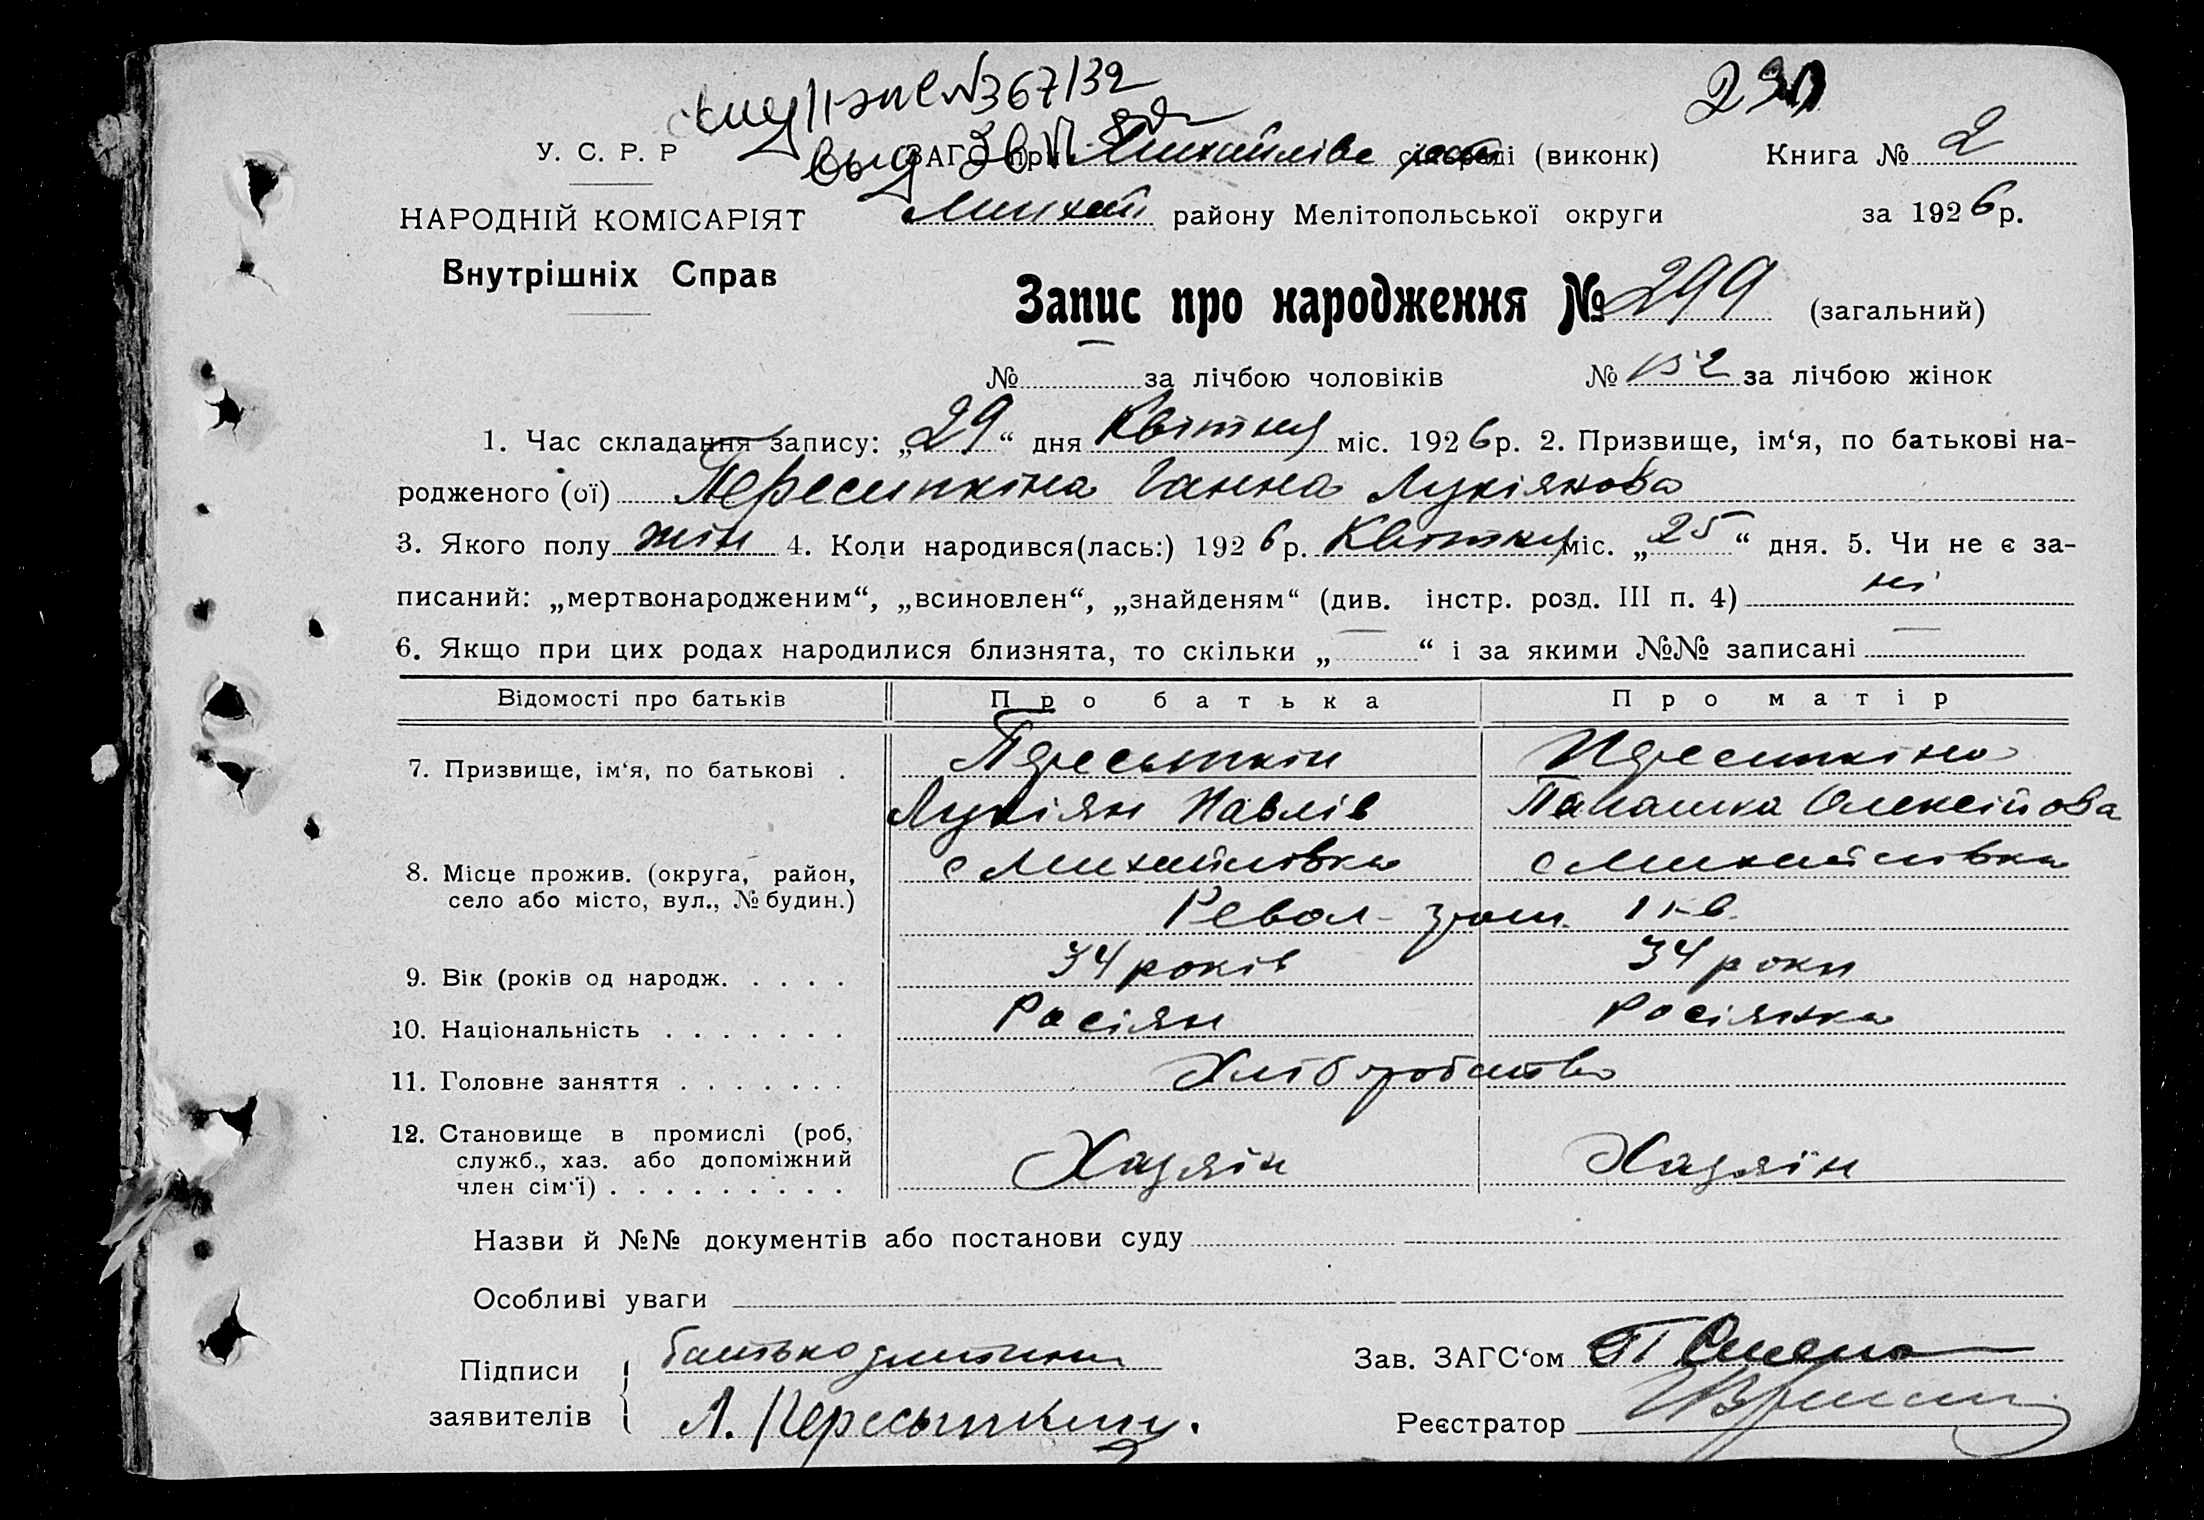 №367/32
У. С. Р. Р
выд
ЗАГС при Михайлівс сільраді (виконк)
Книга № 2
НАРОДНІЙ КОМІСАРІЯТ
Михай району Мелітопольської округи
за 1926 р.
Внутрішніх Справ
Запис про народження № 299 (загальний)
№ за лічбою чоловіків № 152 за лічбою жінок
1. Час складання запису: „29“ дня Квітня міс. 1926 р. 2. Призвище, ім‘я, по батькові на-
родженого (ої) Пересипкіна Ганна Лукіянова
3. Якого полу жін 4. Коли народився(лась:) 1926 р. Квітня міс. „25“ дня. 5. Чи не є за-
писаний: „мертвонародженим“, „всиновлен“, „знайденям“ (див. інстр. розд. III п. 4) ні
6. Якщо при цих родах народилися близнята, то скільки „—“ і за якими №№ записані —
Відомості про батьків Про батька Про матір
7. Призвище, ім‘я, по батькові . Пересипкін Пересипкіна
Лукіян Павлів Параска Олексійова
8. Місце прожив. (округа, район, с Михайлівка с Михайлівка
село або місто, вул., № будин.) Револ- гром. 1 кв.
9. Вік (років од народж. . . . . 34 років 34 роки
10. Національність . . . . . . . Росіян Росіянка
11. Головне заняття . . . . . . . Хліборобство
12. Становище в промислі (роб,
служб., хаз. або допоміжний Хазяїн Хазяїн
член сім‘ї) . . . . . . . . .
Назви й №№ документів або постанови суду
Особливі уваги
Підписи батько дитини
Зав. ЗАГС‘ом
заявителів Л. Пересыпкин.
Реєстратор